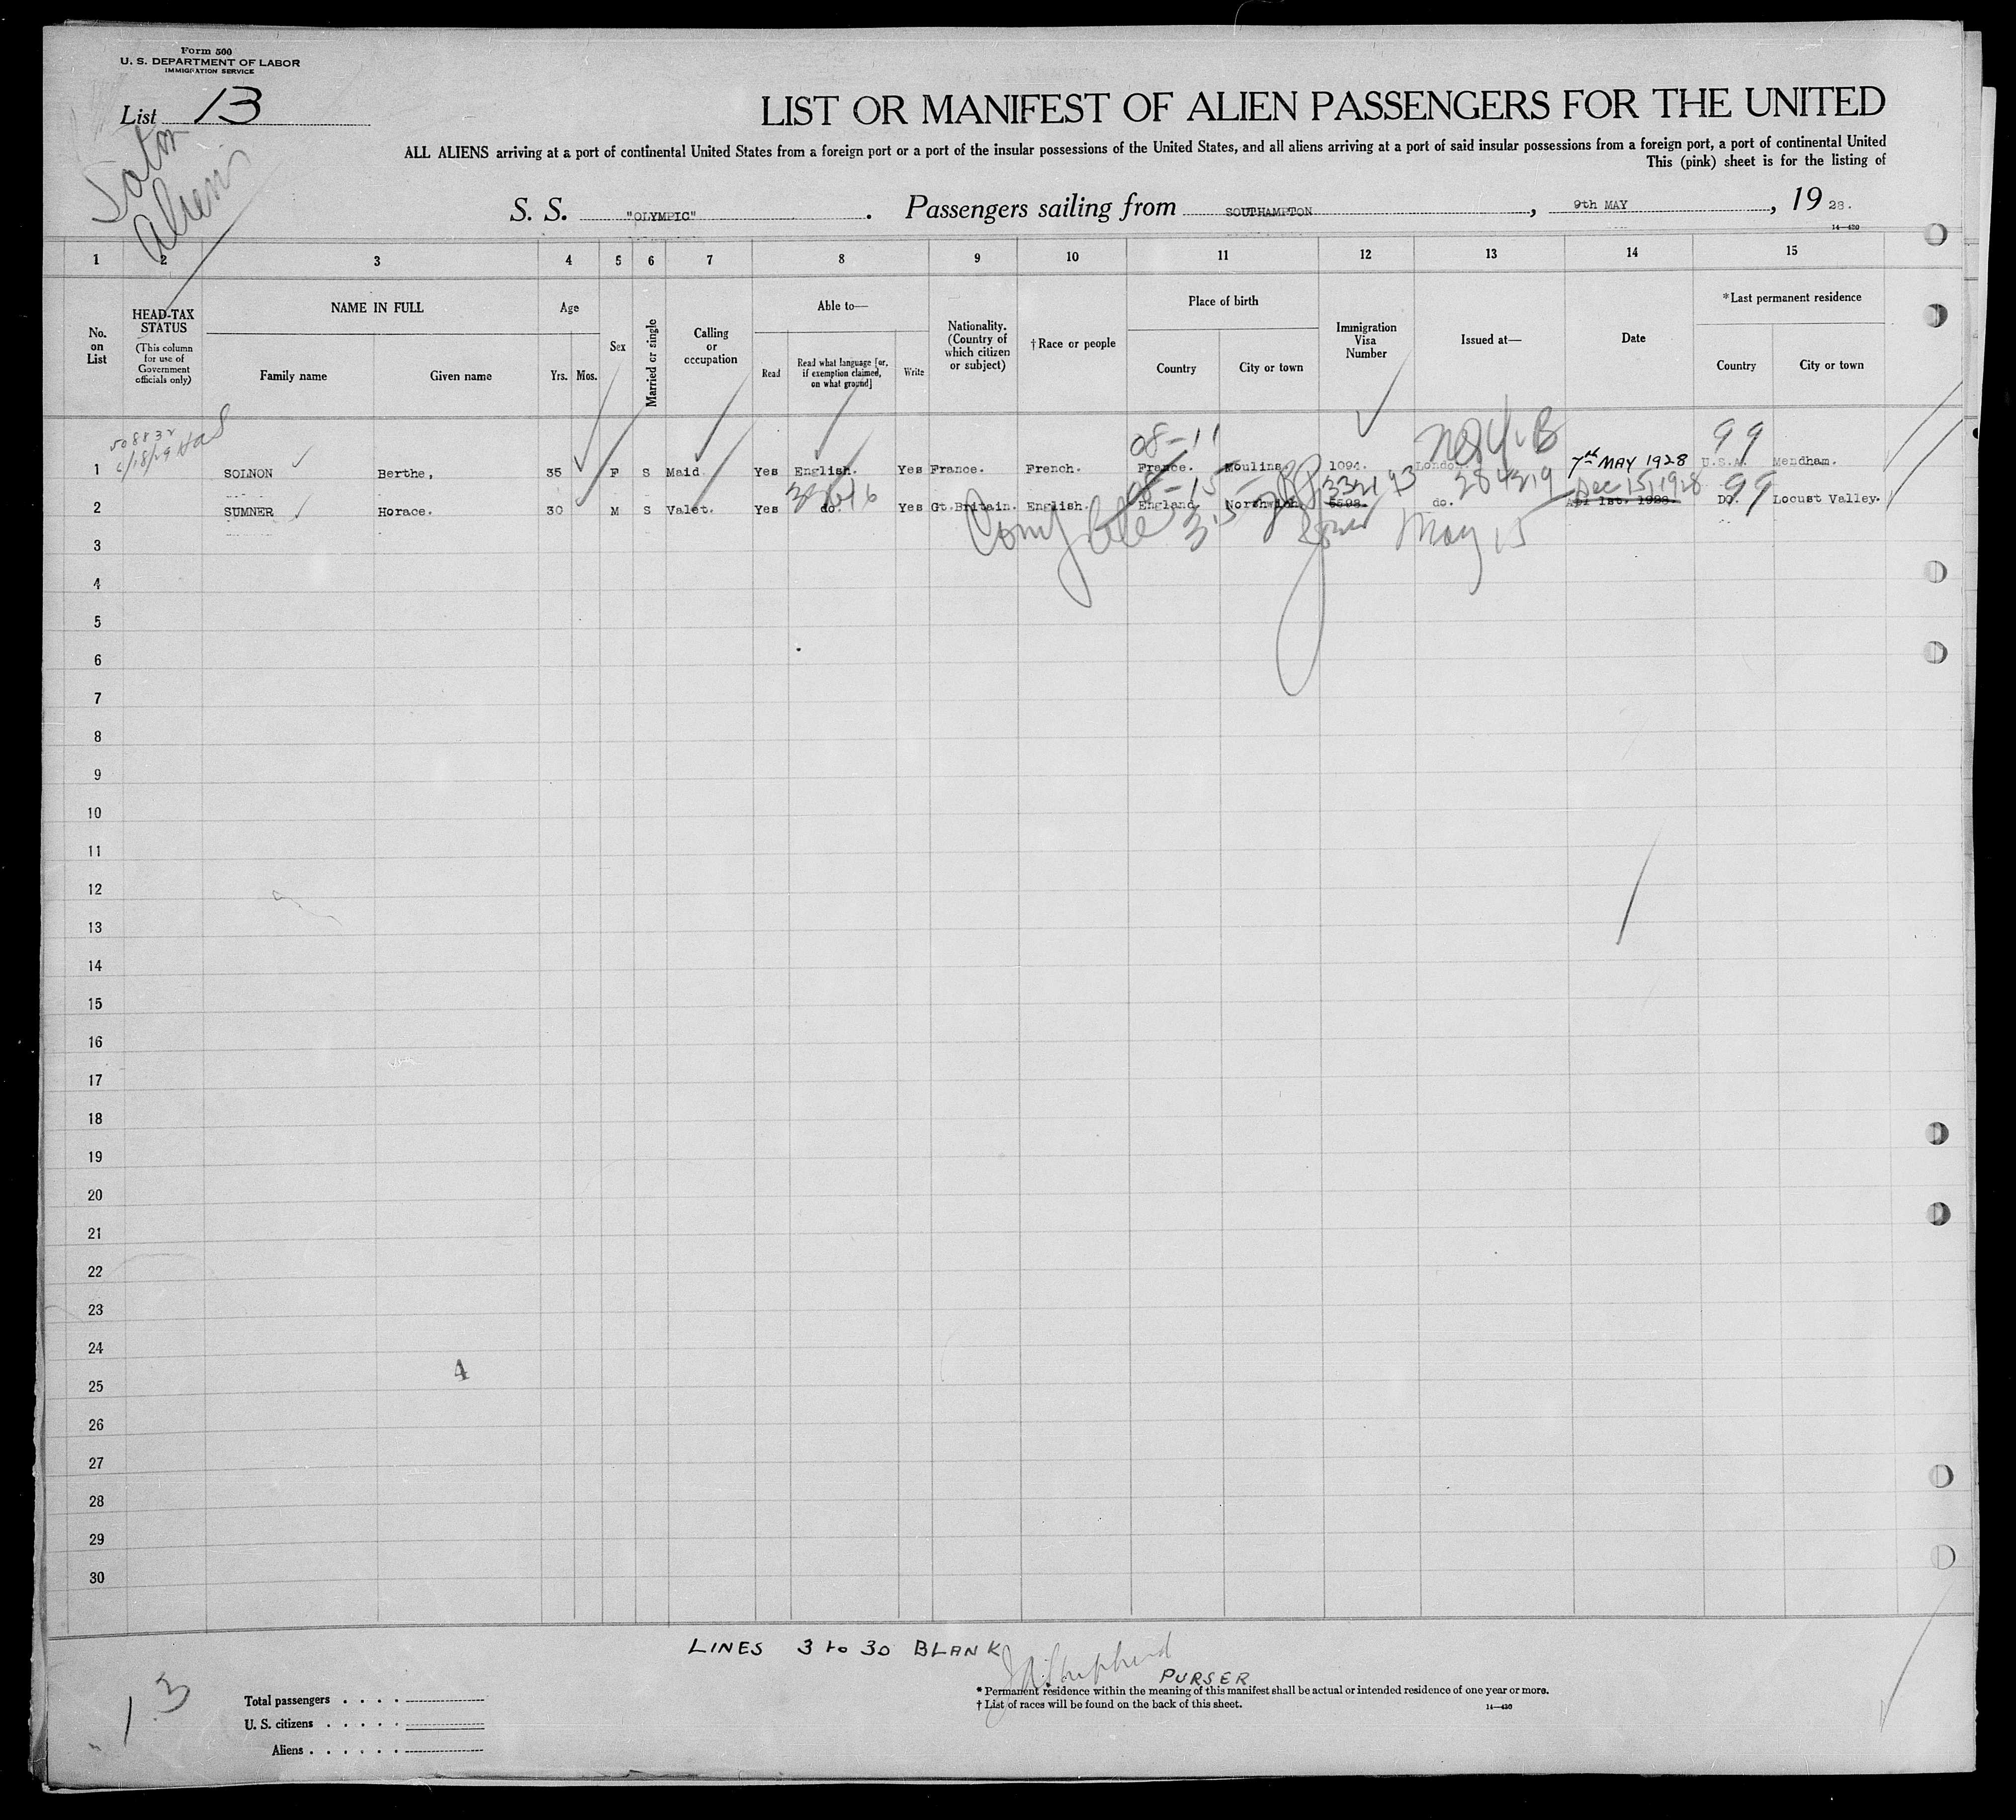 Form 500
U. S. DEPARTMENT OF LABOR
IMMIGRATION SERVICE
List 13
LIST OR MANIFEST OF ALIEN PASSENGERS FOR THE UNITED
ALL ALIENS arriving at a port of continental United States from a foreign port or a port of the insular possessions of the United States, and all aliens arriving at a port of said insular possessions from a foreign port, a port of continental United
This (pink) sheet is for the listing of
Aliens
S. S. "OLYMPIC". Passengers sailing from SOUTHAMPTON, 9th MAY, 19 28.
14—420
1 2 3 4 5 6 7 8 9 10 11 12 13 14 15
No. on List
HEAD-TAX STATUS (This column for use of Government officials only)
NAME IN FULL Family name Given name
Age Yrs. Mos.
Sex
Married or single
Calling or occupation
Able to— Read Read what language [or, if exemption claimed, on what ground] Write
Nationality. (Country of which citizen or subject)
†Race or people
Place of birth Country City or town
Immigration Visa Number
Issued at—
Date
*Last permanent residence Country City or town
08-11 99
1 SOLNON Berthe, 35 F S Maid Yes English. Yes France. French. France. Moulins. 1094. London. 7th MAY 1928 U.S.A. Mendham.
Dec 15, 1928 99
2 SUMNER Horace. 30 M S Valet. Yes do. Yes Gt.Britain. English. England. Northwich. 5598. do. Apl 1st. 1928. DO. Locust Valley.
May 15
3
4
5
6
7
8
9
10
11
12
13
14
15
16
17
18
19
20
21
22
23
24
4
25
26
27
28
29
30
LINES 3 to 30 BLANK
J A Shepherd
PURSER
* Permanent residence within the meaning of this manifest shall be actual or intended residence of one year or more.
† List of races will be found on the back of this sheet.
14—420
13
Total passengers
U. S. citizens
Aliens